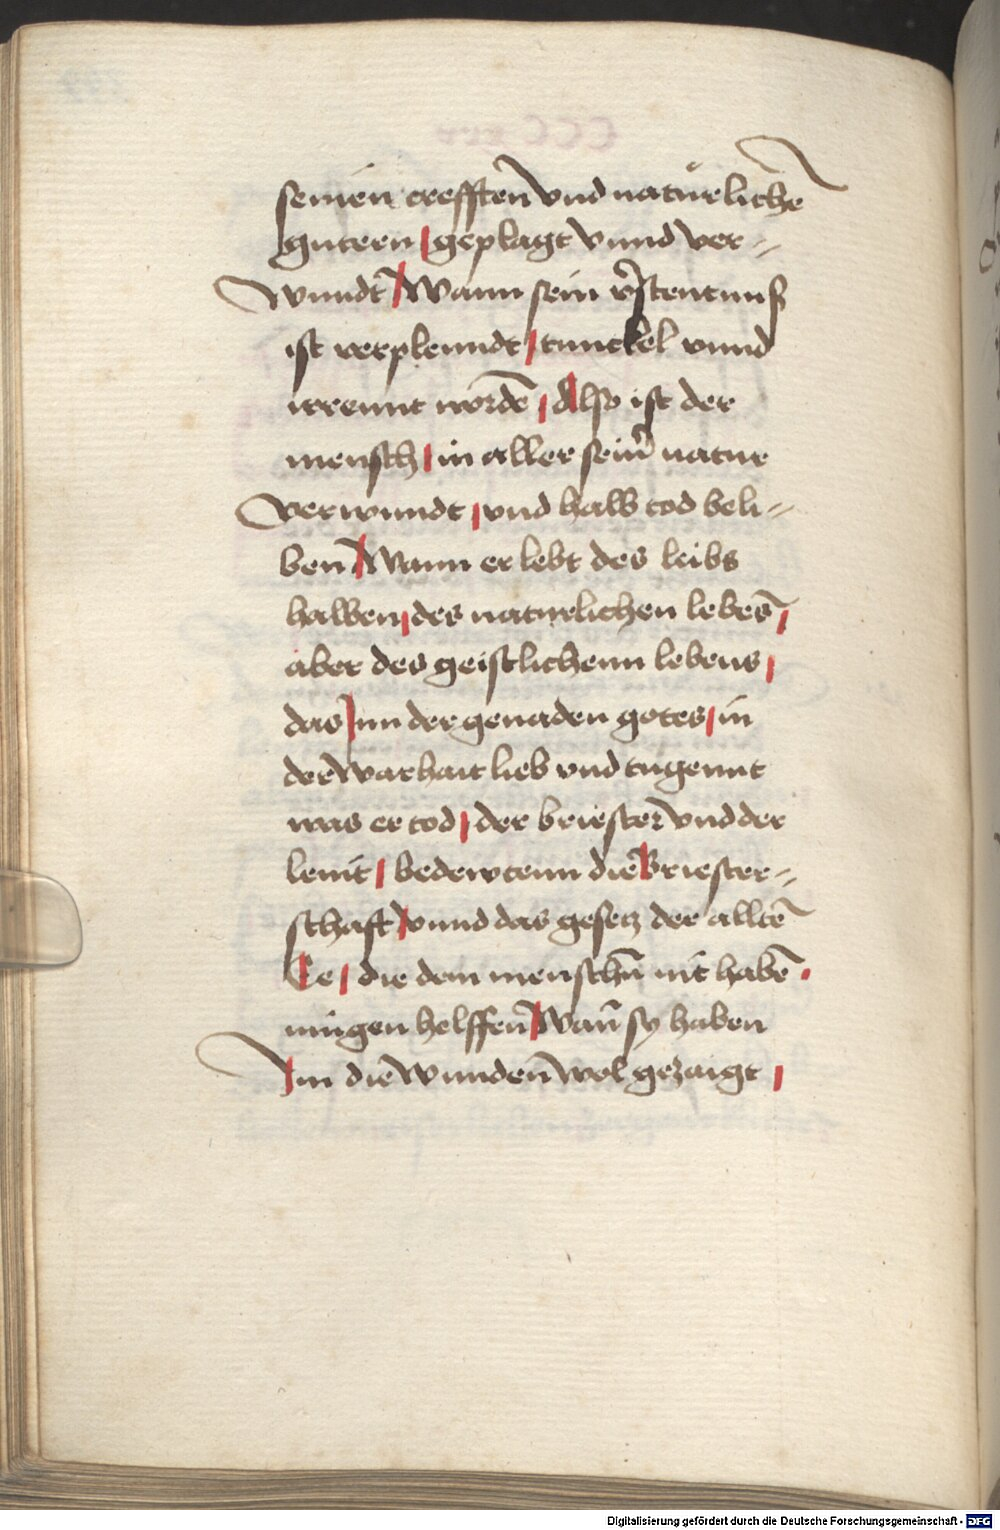 seinen crefften vnd naturliche
gutern geplagt vnnd ver=
wundt Wann sein v̄stentnuß
ist verplenndt tunckel vnnd
irrennt wordē Also ist der
mensch in aller sein̄ natur
verwundt vnd halb tod beli=
ben Wann er lebt des leibs
halben des naturlichen lebēs
aber des geistlichenn lebens
das Inn der genaden gotes in
der warhait lieb vnd tugennt
was er tod der briester vnd der
leuit bedewtenn die Briester=
schaft vnnd das gesetz der alltē
Ee die dem menschn̄ nit habē
mügen helffen Wan̄ sy haben
Im die wunden wol gezaigt
Digitalisierung gefördert durch die Deutsche Forschungsgemeinschaft - DFG